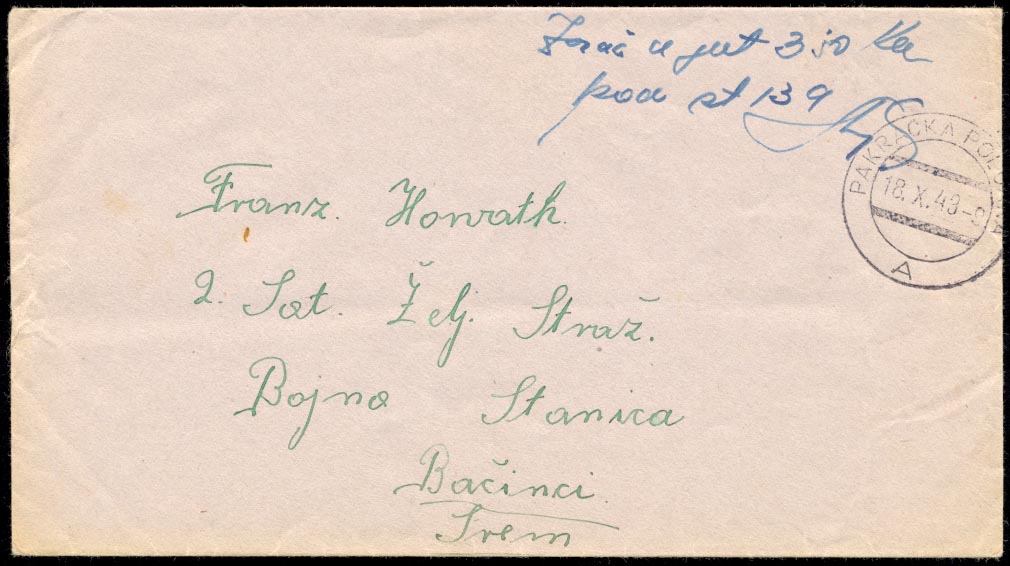 u gut 3,50 Kn
pod st 139
PAKRAČKA POLJANA
18.X.43-9
A
Franz. Horvath.
2. Sat. Želj. Straž.
Bojna Stanica
Bačinci.
Srem